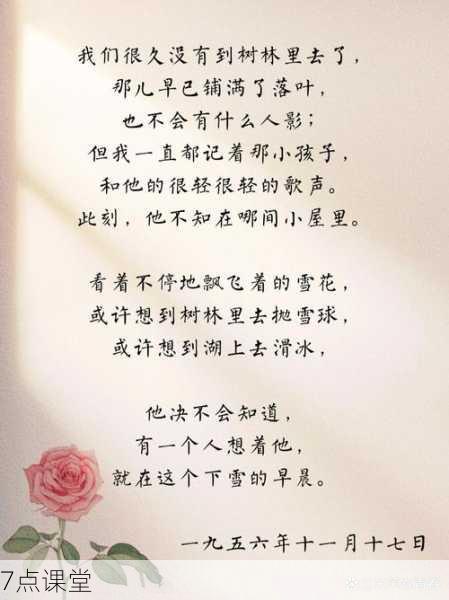 我们很久没有到树林里去了，
那儿早已铺满了落叶，
也不会有什么人影；
但我一直都记着那小孩子，
和他的很轻很轻的歌声。
此刻，他不知在哪间小屋里。
看着不停地飘飞着的雪花，
或许想到树林里去抛雪球，
或许想到湖上去滑冰，
他决不会知道，
有一个人想着他，
就在这个下雪的早晨。
一九五六年十一月十七日
7点课堂